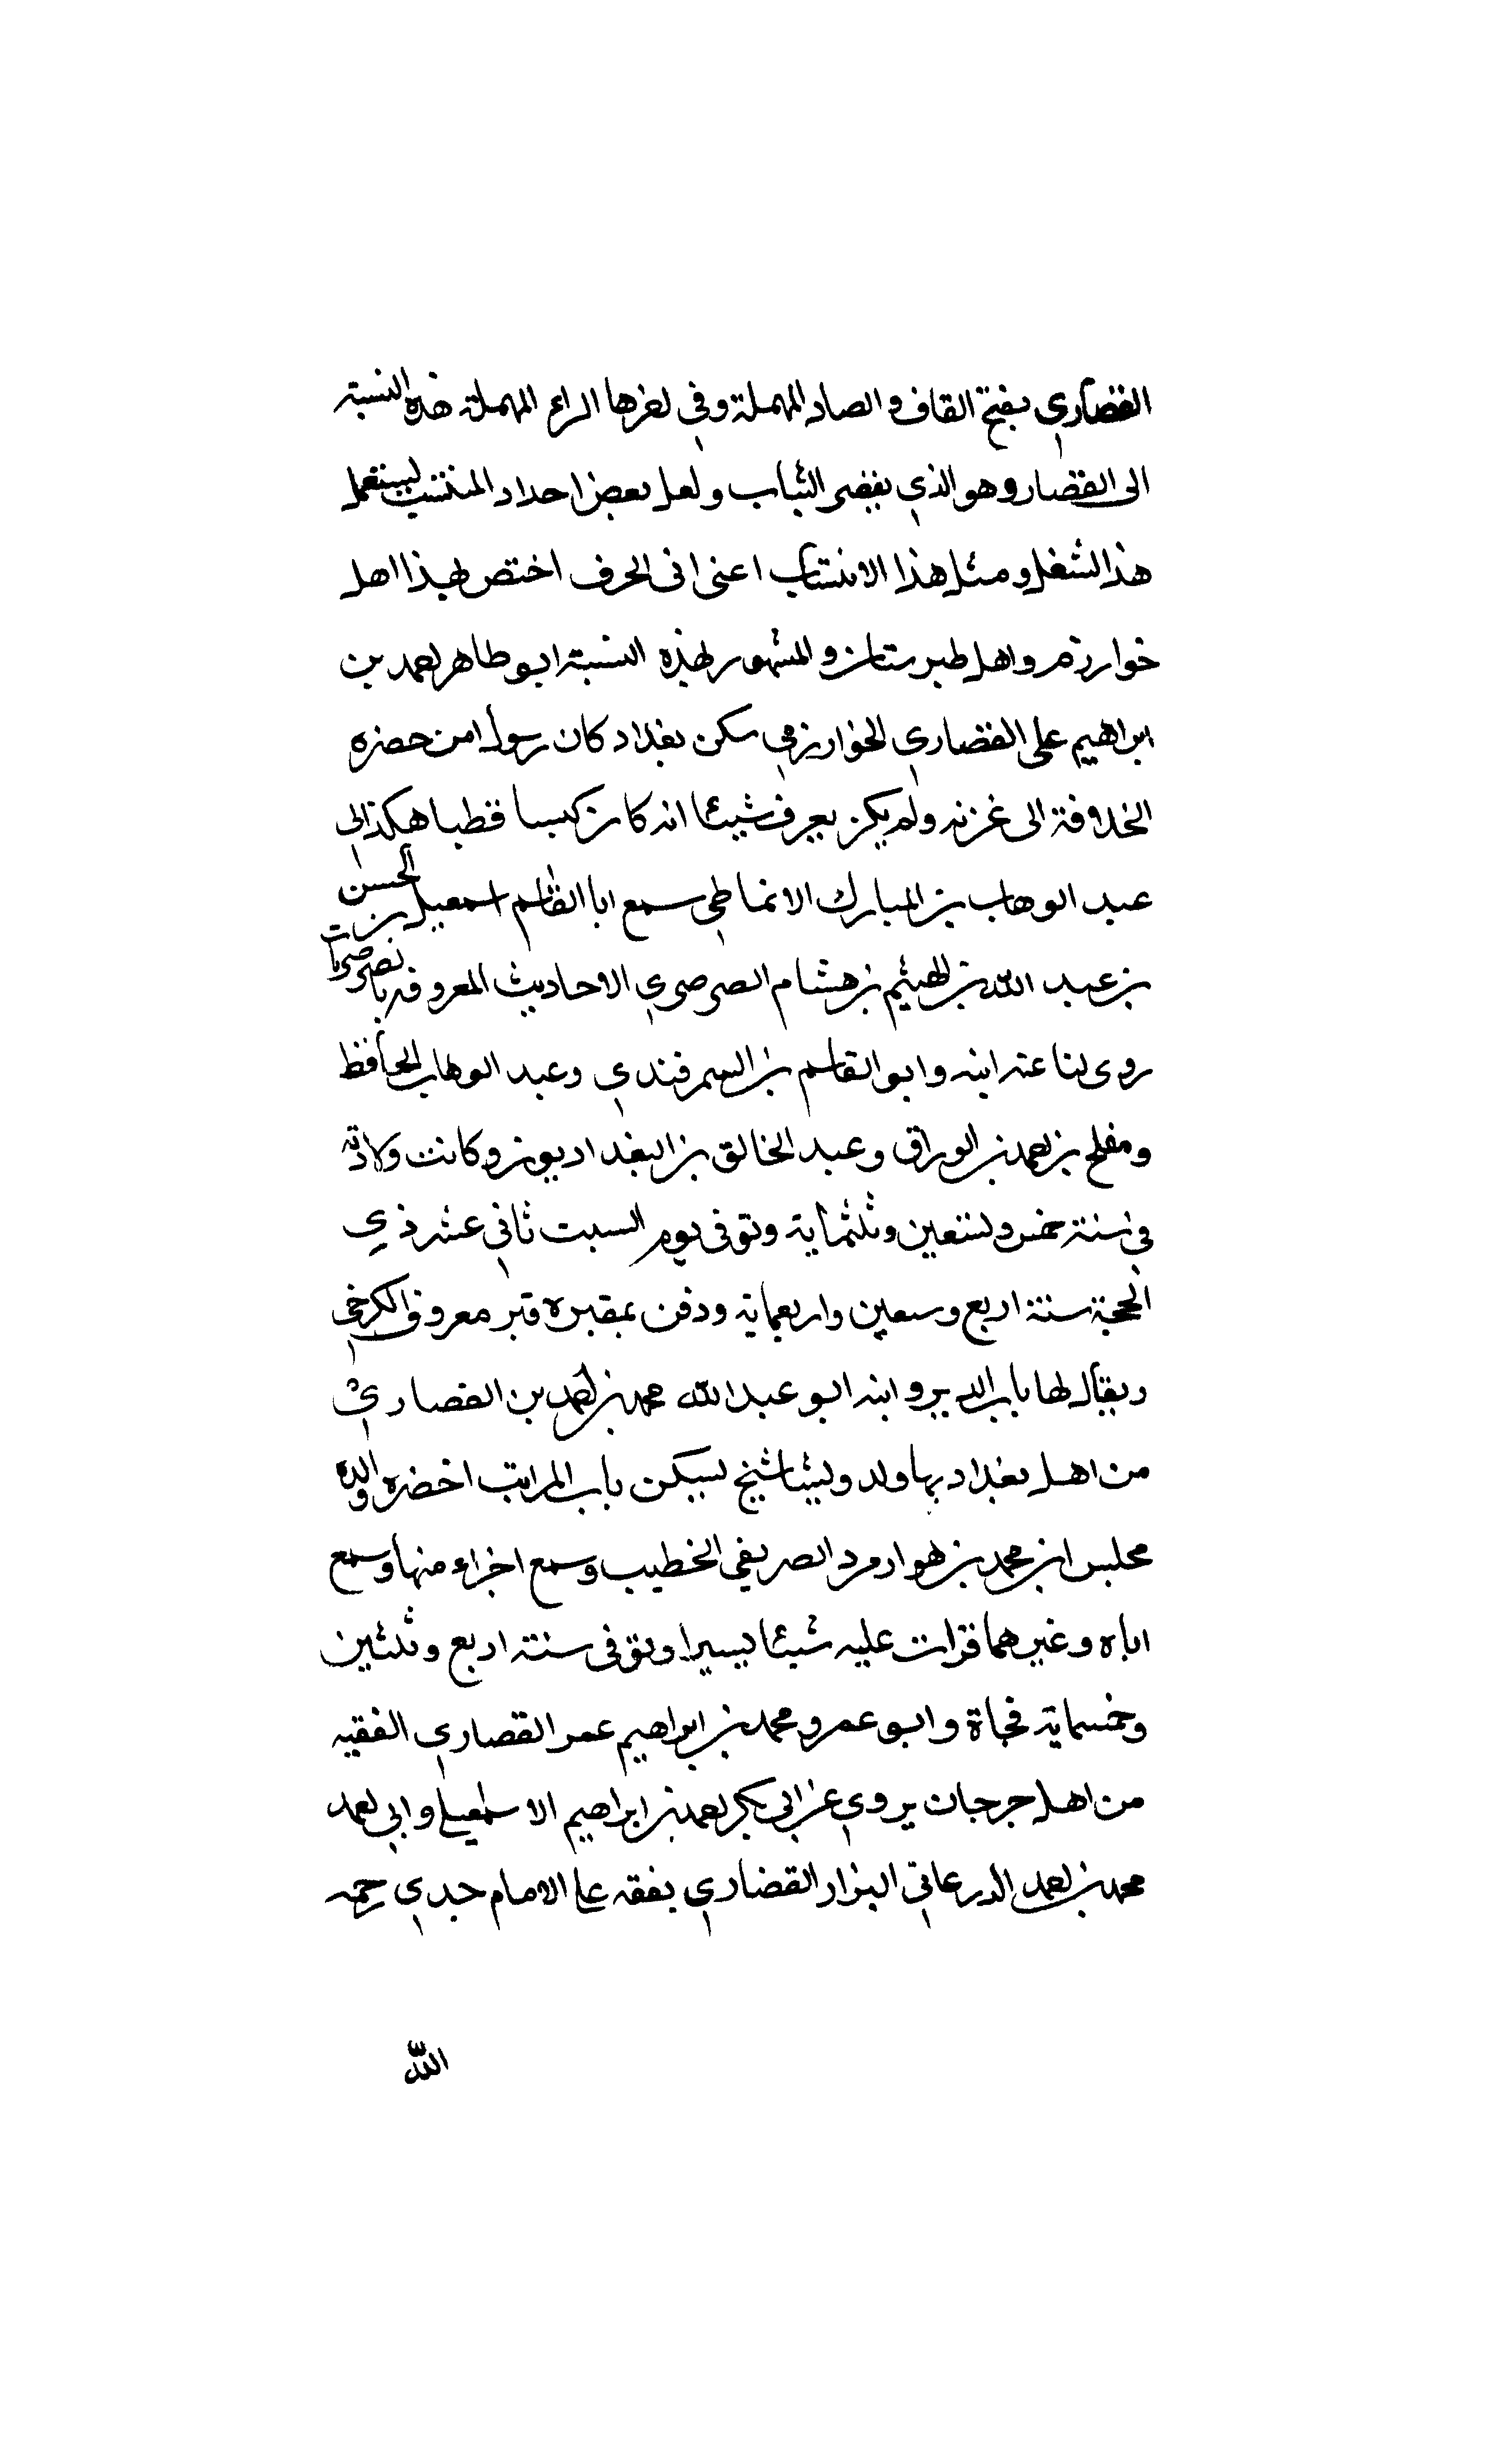 القصاري بفتح القاف و الصاد المهملة وفي اخرها الراء المهملة هذه النسبة
الى القصار وهو الذي يقصر الثياب ولعل بعض اجداد المنتسب ليستعمل
هذا الشغل ومثل هذا الانتساب اعنى فى الحرف اختص بهذا اهل
خوارزم واهل طبرستان و المشهور بهذه النسبة ابو طاهر احمد بن
ابراهيم على القصاري الخوارزمي سكن بغداد كان رسولا من حضره
الخلافة الى غزنه ولم يكن يعرف شيئا انه كان كيسا قطبا هكذا لي
عبد الوهاب بن المبارك الانماطي سمع ابا القاسم اسمعيل بن الحسن
بن عبد الله بن الهيثم بن هشام الصرصري الاحاديث المعروفه بالصرصريات
روى لنا عنه ابنه وابو القاسم بن السمرقندي وعبد الوهاب الحافظ
ومفلح بن احمد بن الوراق وعبد الخالق بن البغداديون وكانت ولادته
في سنة خمس وتسعين وثلثماية وتوفى يوم السبت ثاني عشر ذي
الحجة سنة اربع وسبعين واربعماية ودفن بمقبرة قبر معروف الكرخي
ويقال لها باب الدير و ابنه ابو عبد الله محمد بن احمد بن القصاري
من اهل بغداد بها ولد ونشا شيخ يسكن باب المراتب احضره والده
مجلس ابن محمد بن هزارمرد الصريفي الخطيب وسمع اجزاء منها وسمع
اباه وغيرهما قرات عليه شيئا يسيرا وتوفى سنة اربع وثلثين
وخمسماية فجاة وابو عمرو محمد بن ابراهيم عمر القصاري الفقيه
من اهل جرجان يروي عن ابي بكر احمد بن ابراهيم الاسمعيلي وابي احمد
محمد بن احمد الدرعاني البزار القصاري يفقه على الامام جدي رحمه
الله